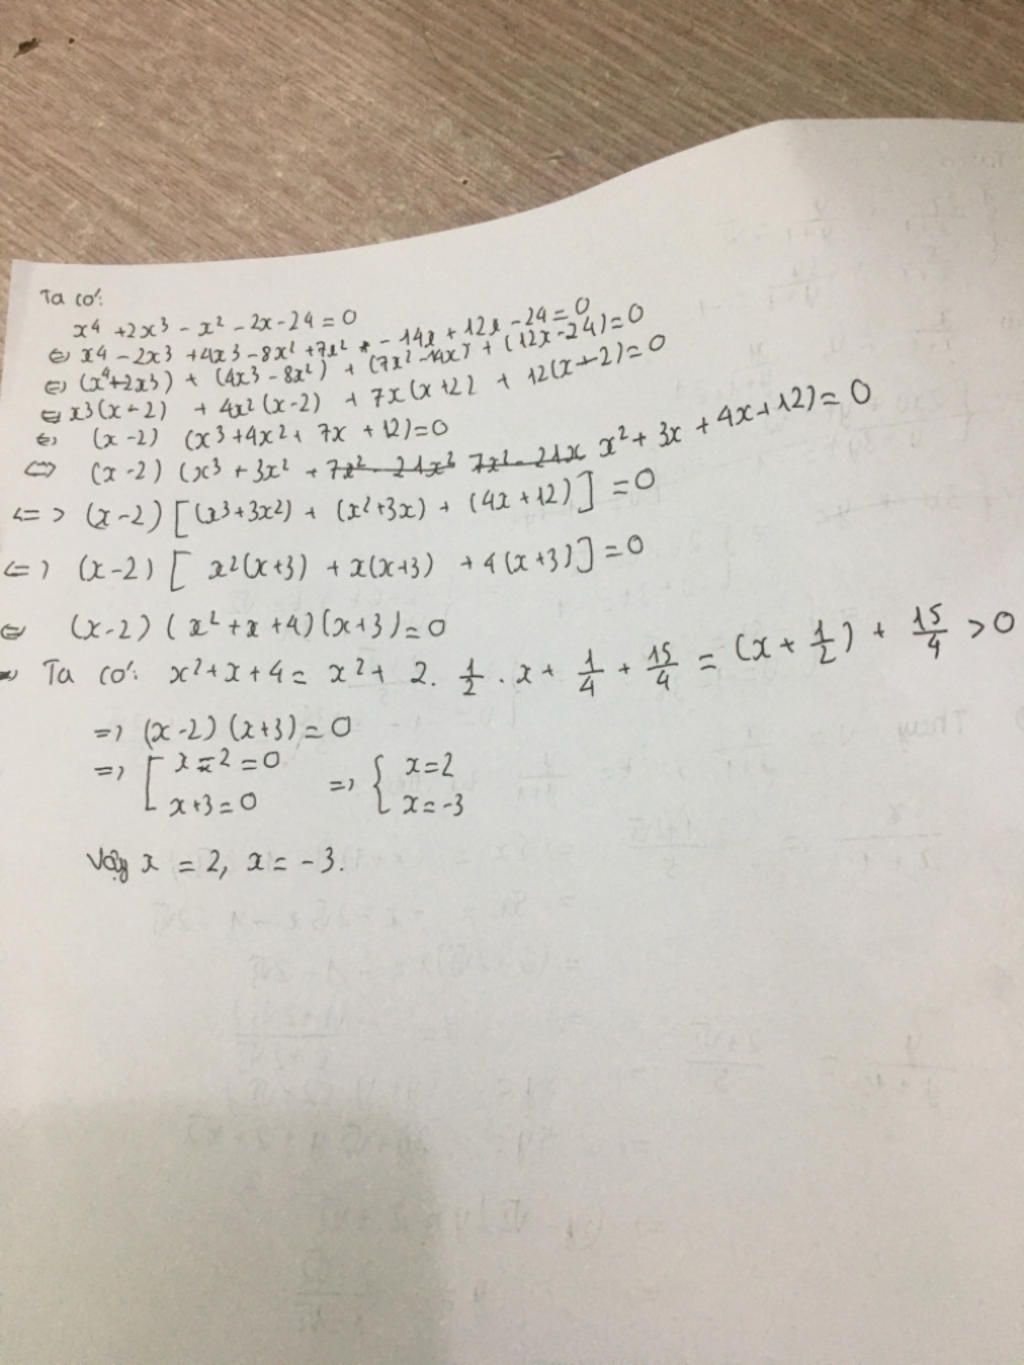 Ta có:
x⁴ + 2x³ - x² - 2x - 24 = 0
⇔ x⁴ - 2x³ + 4x³ - 8x² + 7x² - 14x + 12x - 24 = 0
⇔ (x⁴+2x³) + (4x³ - 8x²) + (7x² - 14x) + (12x - 24) = 0
⇔ x³(x-2) + 4x²(x-2) + 7x(x+2) + 12(x-2) = 0
⇔ (x-2) (x³ + 4x² + 7x + 12) = 0
⇔ (x-2) (x³ + 3x² + 7x² - 21x² 7x² - 21x x² + 3x + 4x + 12) = 0
<=> (x-2) [(x³+3x²) + (x²+3x) + (4x+12)] = 0
<=> (x-2) [ x²(x+3) + x(x+3) + 4(x+3)] = 0
⇔ (x-2) (x² + x + 4) (x+3) = 0
Ta có: x² + x + 4 = x² + 2. 1/2 . x + 1/4 + 15/4 = (x + 1/2) + 15/4 > 0
=> (x-2) (x+3) = 0
=> [ x-2 = 0 => { x = 2
x+3 = 0 x = -3
Vậy x = 2, x = -3.